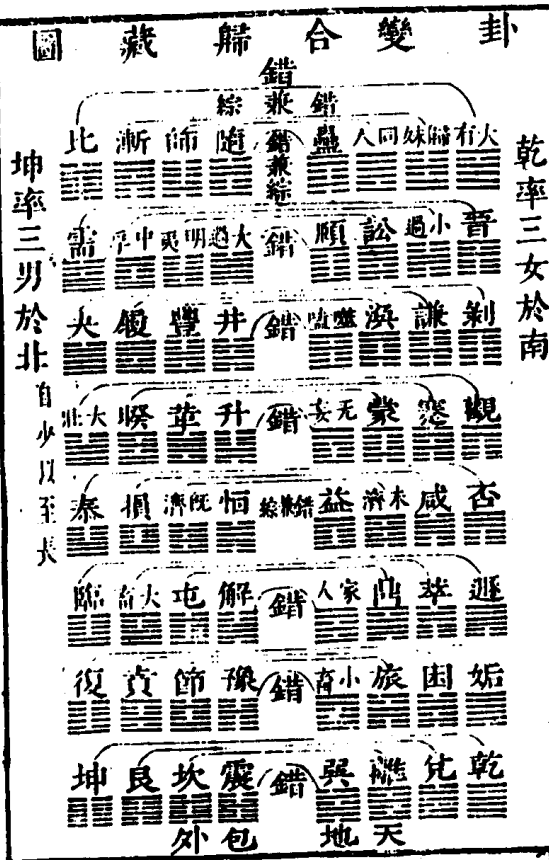 卦變合歸藏圖
乾率三女於南
錯
錯兼綜
大有 歸妹 同人 蠱 錯兼綜 隨 師 漸 比
晉 小過 訟 頤 錯 大過 明夷 中孚 需
剝 謙 渙 噬嗑 錯 井 豐 履 夬
觀 蹇 蒙 无妄 錯 升 革 睽 大壯
否 咸 未濟 益 錯兼綜 恒 既濟 損 泰
遯 萃 鼎 家人 錯 解 屯 大畜 臨
姤 困 旅 小畜 錯 豫 節 賁 復
乾 兌 離 巽 錯 震 坎 艮 坤
天地包外
坤率三男於北自少以至長